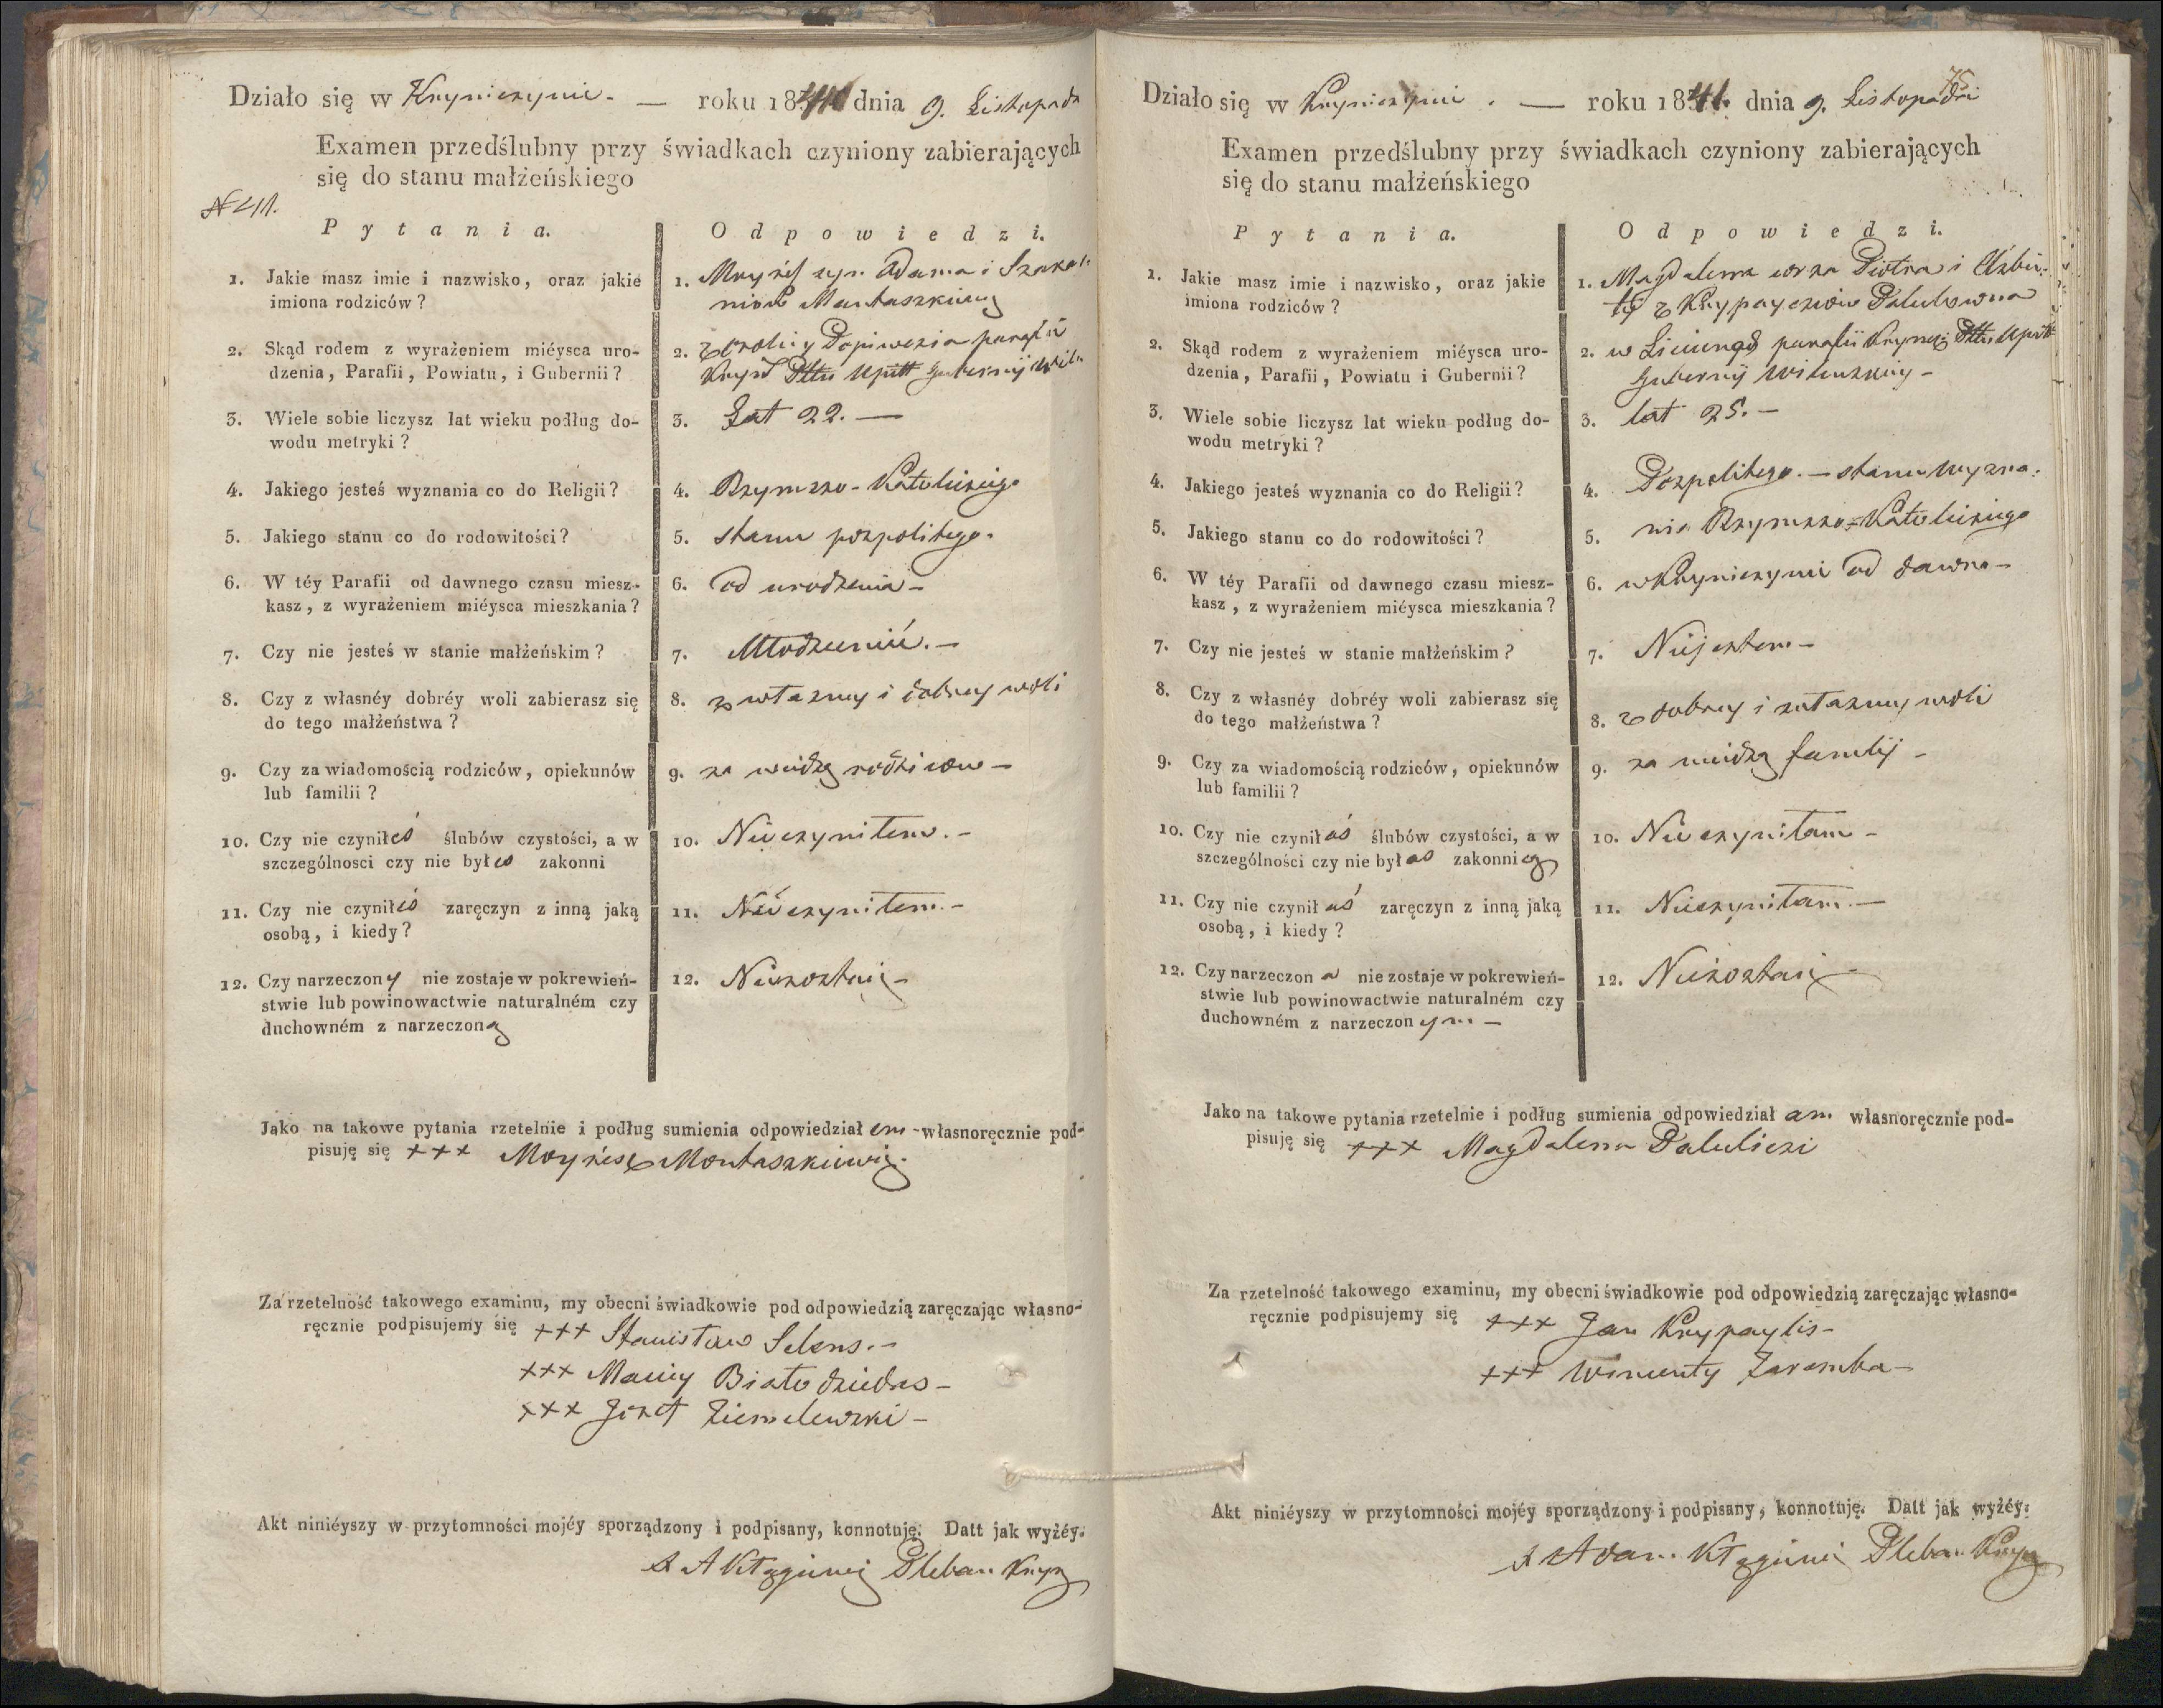 Działo się w Kryniczynie. — roku 1841 dnia 9. Listopada
Examen przedślubny przy świadkach czyniony zabierających
się do stanu małżeńskiego
N 41.
Pytania.
Odpowiedzi.
1. Jakie masz imie i nazwisko, oraz jakie
imiona rodziców?
1. Moyżesz syn Adama i
2. Skąd rodem z wyrażeniem miéysca uro-
dzenia, Parafii, Powiatu, i Gubernii?
2. z okolicy parafii
Pttu Upitt Gubernij
3. Wiele sobie liczysz lat wieku podług do-
wodu metryki?
3. Lat 22. —
4. Jakiego jesteś wyznania co do Religii?
4. Rzymsko-Katolickiego
5. Jakiego stanu co do rodowitości?
5. stanu pospolitego.
6. W téy Parafii od dawnego czasu miesz-
kasz, z wyrażeniem miéysca mieszkania?
6. od urodzenia –
7. Czy nie jesteś w stanie małżeńskim?
7. Młodzieniec. –
8. Czy z własnéy dobréy woli zabierasz się
do tego małżeństwa?
8. z własney i dobrey woli
9. Czy za wiadomością rodziców, opiekunów
lub familii?
9. za wiedzą rodziców –
10. Czy nie czyniłeś ślubów czystości, a w
szczególnosci czy nie byłeś zakonni
10. Nie czyniłem. –
11. Czy nie czyniłeś zaręczyn z inną jaką
osobą, i kiedy?
11. Nie czyniłem. –
12. Czy narzeczony nie zostaje w pokrewień-
stwie lub powinowactwie naturalném czy
duchowném z narzeczoną
12. Niezostaię –
Jako na takowe pytania rzetelnie i podług sumienia odpowiedziałem – własnoręcznie pod-
pisuję się +++ Moyżesz Montaszkiewicz.
Za rzetelność takowego examinu, my obecni świadkowie pod odpowiedzią zaręczając własno-
ręcznie podpisujemy się +++ Stanisław Selens. –
+++ Maciey Białodziedas –
+++ Jozef Ziemelewski –
Akt niniéyszy w przytomności mojéy sporządzony i podpisany, konnotuję. Datt jak wyżéy.
X A Kłągiewicz Pleban Kryn
75
Działo się w Krynicznie. — roku 1841. dnia 9. Listopada
Examen przedślubny przy świadkach czyniony zabierających
się do stanu małżeńskiego
Pytania.
Odpowiedzi.
1. Jakie masz imie i nazwisko, oraz jakie
imiona rodziców?
1. Magdalena corka Piotra i Elżbie-
ty z
2. Skąd rodem z wyrażeniem miéysca uro-
dzenia, Parafii, Powiatu i Gubernii?
2. w parafii Pttu Upitt
Gubernij Wilenskiey –
3. Wiele sobie liczysz lat wieku podług do-
wodu metryki?
3. lat 25. –
4. Jakiego jesteś wyznania co do Religii?
4. Pospolitego. – stanu wyzna-
5. Jakiego stanu co do rodowitości?
5. nia Rzymsko-Katolickiego
6. W téy Parafii od dawnego czasu miesz-
kasz, z wyrażeniem miéysca mieszkania?
6. w Krynicznie od dawna –
7. Czy nie jesteś w stanie małżeńskim?
7. Niejestem –
8. Czy z własnéy dobréy woli zabierasz się
do tego małżeństwa?
8. z dobrey i własney woli
9. Czy za wiadomością rodziców, opiekunów
lub familii?
9. za wiedzą familij –
10. Czy nie czyniłaś ślubów czystości, a w
szczególności czy nie byłaś zakonnicą
10. Nie czyniłam –
11. Czy nie czyniłaś zaręczyn z inną jaką
osobą, i kiedy?
11. Nieczyniłam. —
12. Czy narzeczona nie zostaje w pokrewień-
stwie lub powinowactwie naturalném czy
duchowném z narzeczonym –
12. Niezostaię –
Jako na takowe pytania rzetelnie i podług sumienia odpowiedziałam własnoręcznie pod-
pisuję się +++ Magdalena Paluliczi
Za rzetelność takowego examinu, my obecni świadkowie pod odpowiedzią zaręczając własno-
ręcznie podpisujemy się +++ Jan Krypaylis –
+++ Wincenty Zaremba –
Akt niniéyszy w przytomności mojéy sporządzony i podpisany, konnotuję. Datt jak wyżéy.
X Adam Kłągiewicz Pleban Kryn